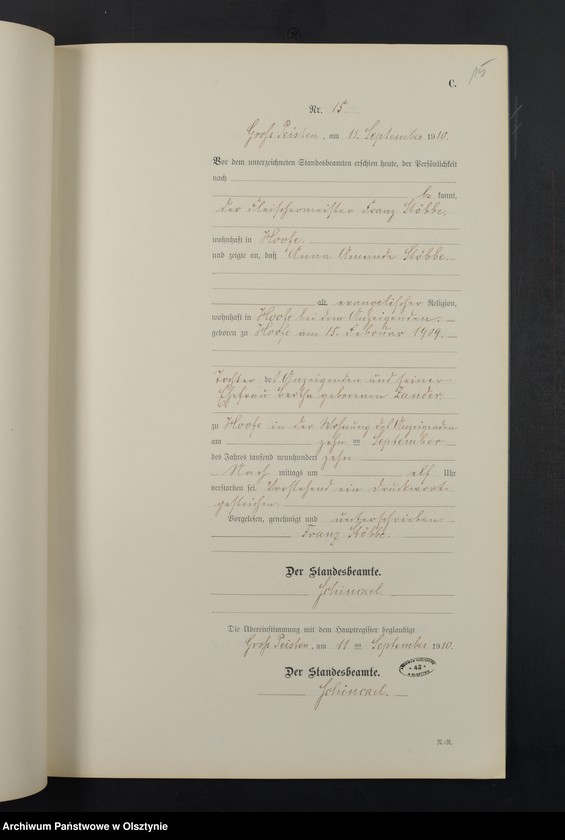 15
C.
Nr. 15
Groß Peisten, am 11. September 1910.
Vor dem unterzeichneten Standesbeamten erschien heute, der Persönlichkeit
nach
be kannt,
der Fleischermeister Franz Stöbbe,
wohnhaft in Hoofe.
und zeigte an, daß Anna Amanda Stöbbe.
alt, evangelischer Religion,
wohnhaft in Hoofe bei dem Anzeigenden.
geboren zu Hoofe am 15. Februar 1909.
Tochter des Anzeigenden und seiner
Ehefrau Bertha geborenen Zander.
zu Hoofe in der Wohnung des Anzeigenden
am zehn ten September
des Jahres tausend neunhundert zehn
Nach mittags um elf Uhr
verstorben sei. Vorstehend ein Druckworte
gestrichen.
Vorgelesen, genehmigt und unterschrieben
Franz Stöbbe.
Der Standesbeamte.
Die Übereinstimmung mit dem Hauptregister beglaubigt
Groß Peisten, am 11 ten September 1910.
Der Standesbeamte.
Archiwum Państwowe w Olsztynie